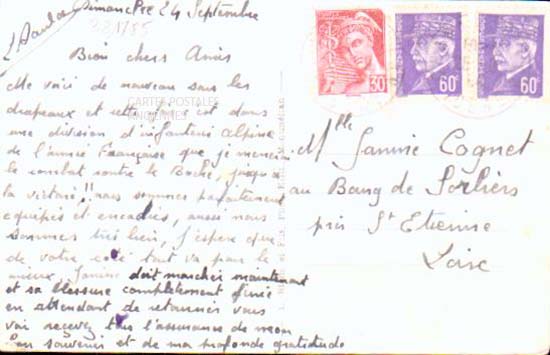 Dimanche 24 Septembre
Bien chers Amis
Me voici de nouveau sous les
drapeaux et cette fois est dans
une division d'infanterie Alpine
de l'armée Française que je menerai
le combat contre le Boche, jusqu'à
la victoire!! nous sommes parfaitement
équipés et encadrés, aussi nous
sommes très bien, j'espère que
de votre coté tout va pour le
mieux, Janine doit marcher maintenant
et sa blessure complètement finie
en attendant de retourner vous
voir recevez tous l'assurance de mon
bon souvenir et de ma profonde gratitude
CARTES POSTALES
ANCIENNES
30
60c
60c
Mlle Janine Cognet
au Bourg de Sorbiers
près St Etienne
Loire